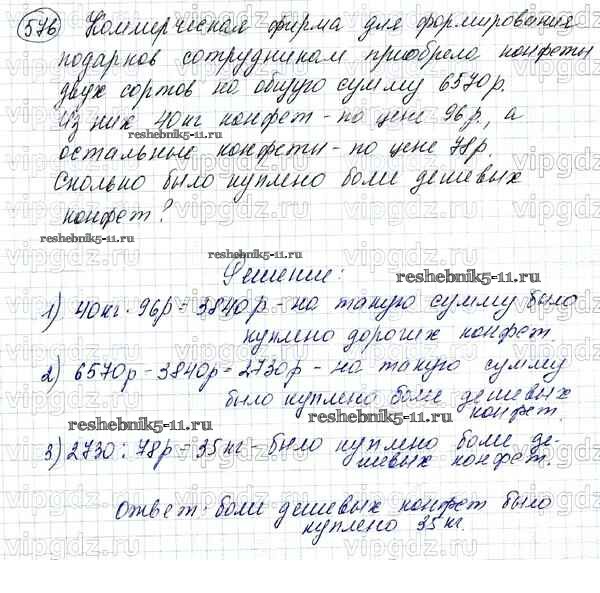 576 Коммерческая фирма для формирования
подарков сотрудникам приобрела конфеты
двух сортов на общую сумму 6570р.
Из них 40кг конфет - по цене 96р, а
reshebnik5-11.ru
остальные конфеты - по цене 78р.
Сколько было куплено боли дешевых
конфет?
reshebnik5-11.ru
Решение:
reshebnik5-11.ru
1) 40кг · 96р = 3840р - на такую сумму было
куплено дорогих конфет.
2) 6570р - 3840р = 2730р - на такую сумму
было куплено боли дешевых
конфет.
reshebnik5-11.ru
3) 2730 : 78р = 35кг - было куплено боли де-
шевых конфет.
Ответ: боли дешевых конфет было
куплено 35кг.
vipgdz.ru